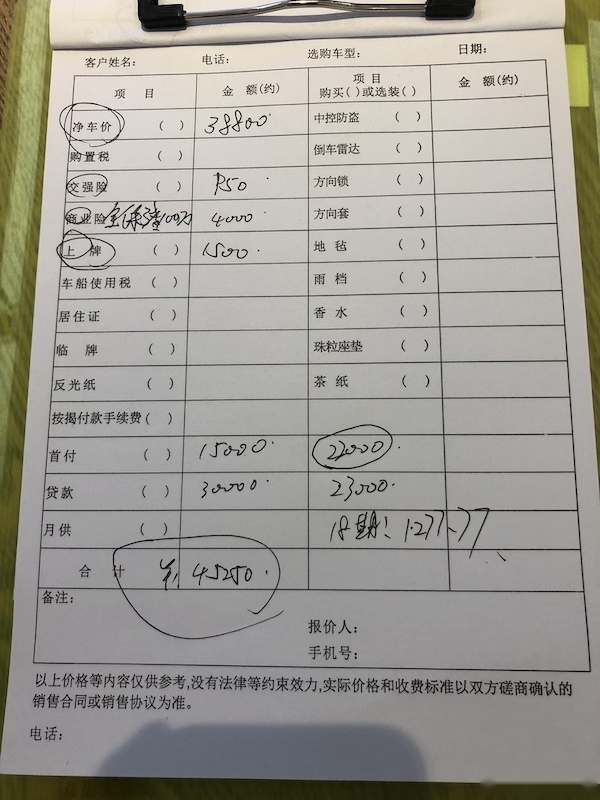 客户姓名： 电话： 选购车型： 日期：
项 目 金 额(约) 项 目 购买( )或选装( ) 金 额(约)
净车价 ( ) 38800 中控防盗 ( )
购置税 ( ) 倒车雷达 ( )
交强险 ( ) 950 方向锁 ( )
商业险 全保 100万 4000 方向套 ( )
上 牌 ( ) 1500 地 毡 ( )
车船使用税 ( ) 雨 档 ( )
居住证 ( ) 香 水 ( )
临 牌 ( ) 珠粒座垫 ( )
反光纸 ( ) 茶 纸 ( )
按揭付款手续费( )
首付 ( ) 15000 22000
贷款 ( ) 30000 23000
月供 ( ) 18期: 1277.77
合 计 ¥: 45250
备注：
报价人：
手机号：
以上价格等内容仅供参考,没有法律等约束效力,实际价格和收费标准以双方磋商确认的
销售合同或销售协议为准。
电话：